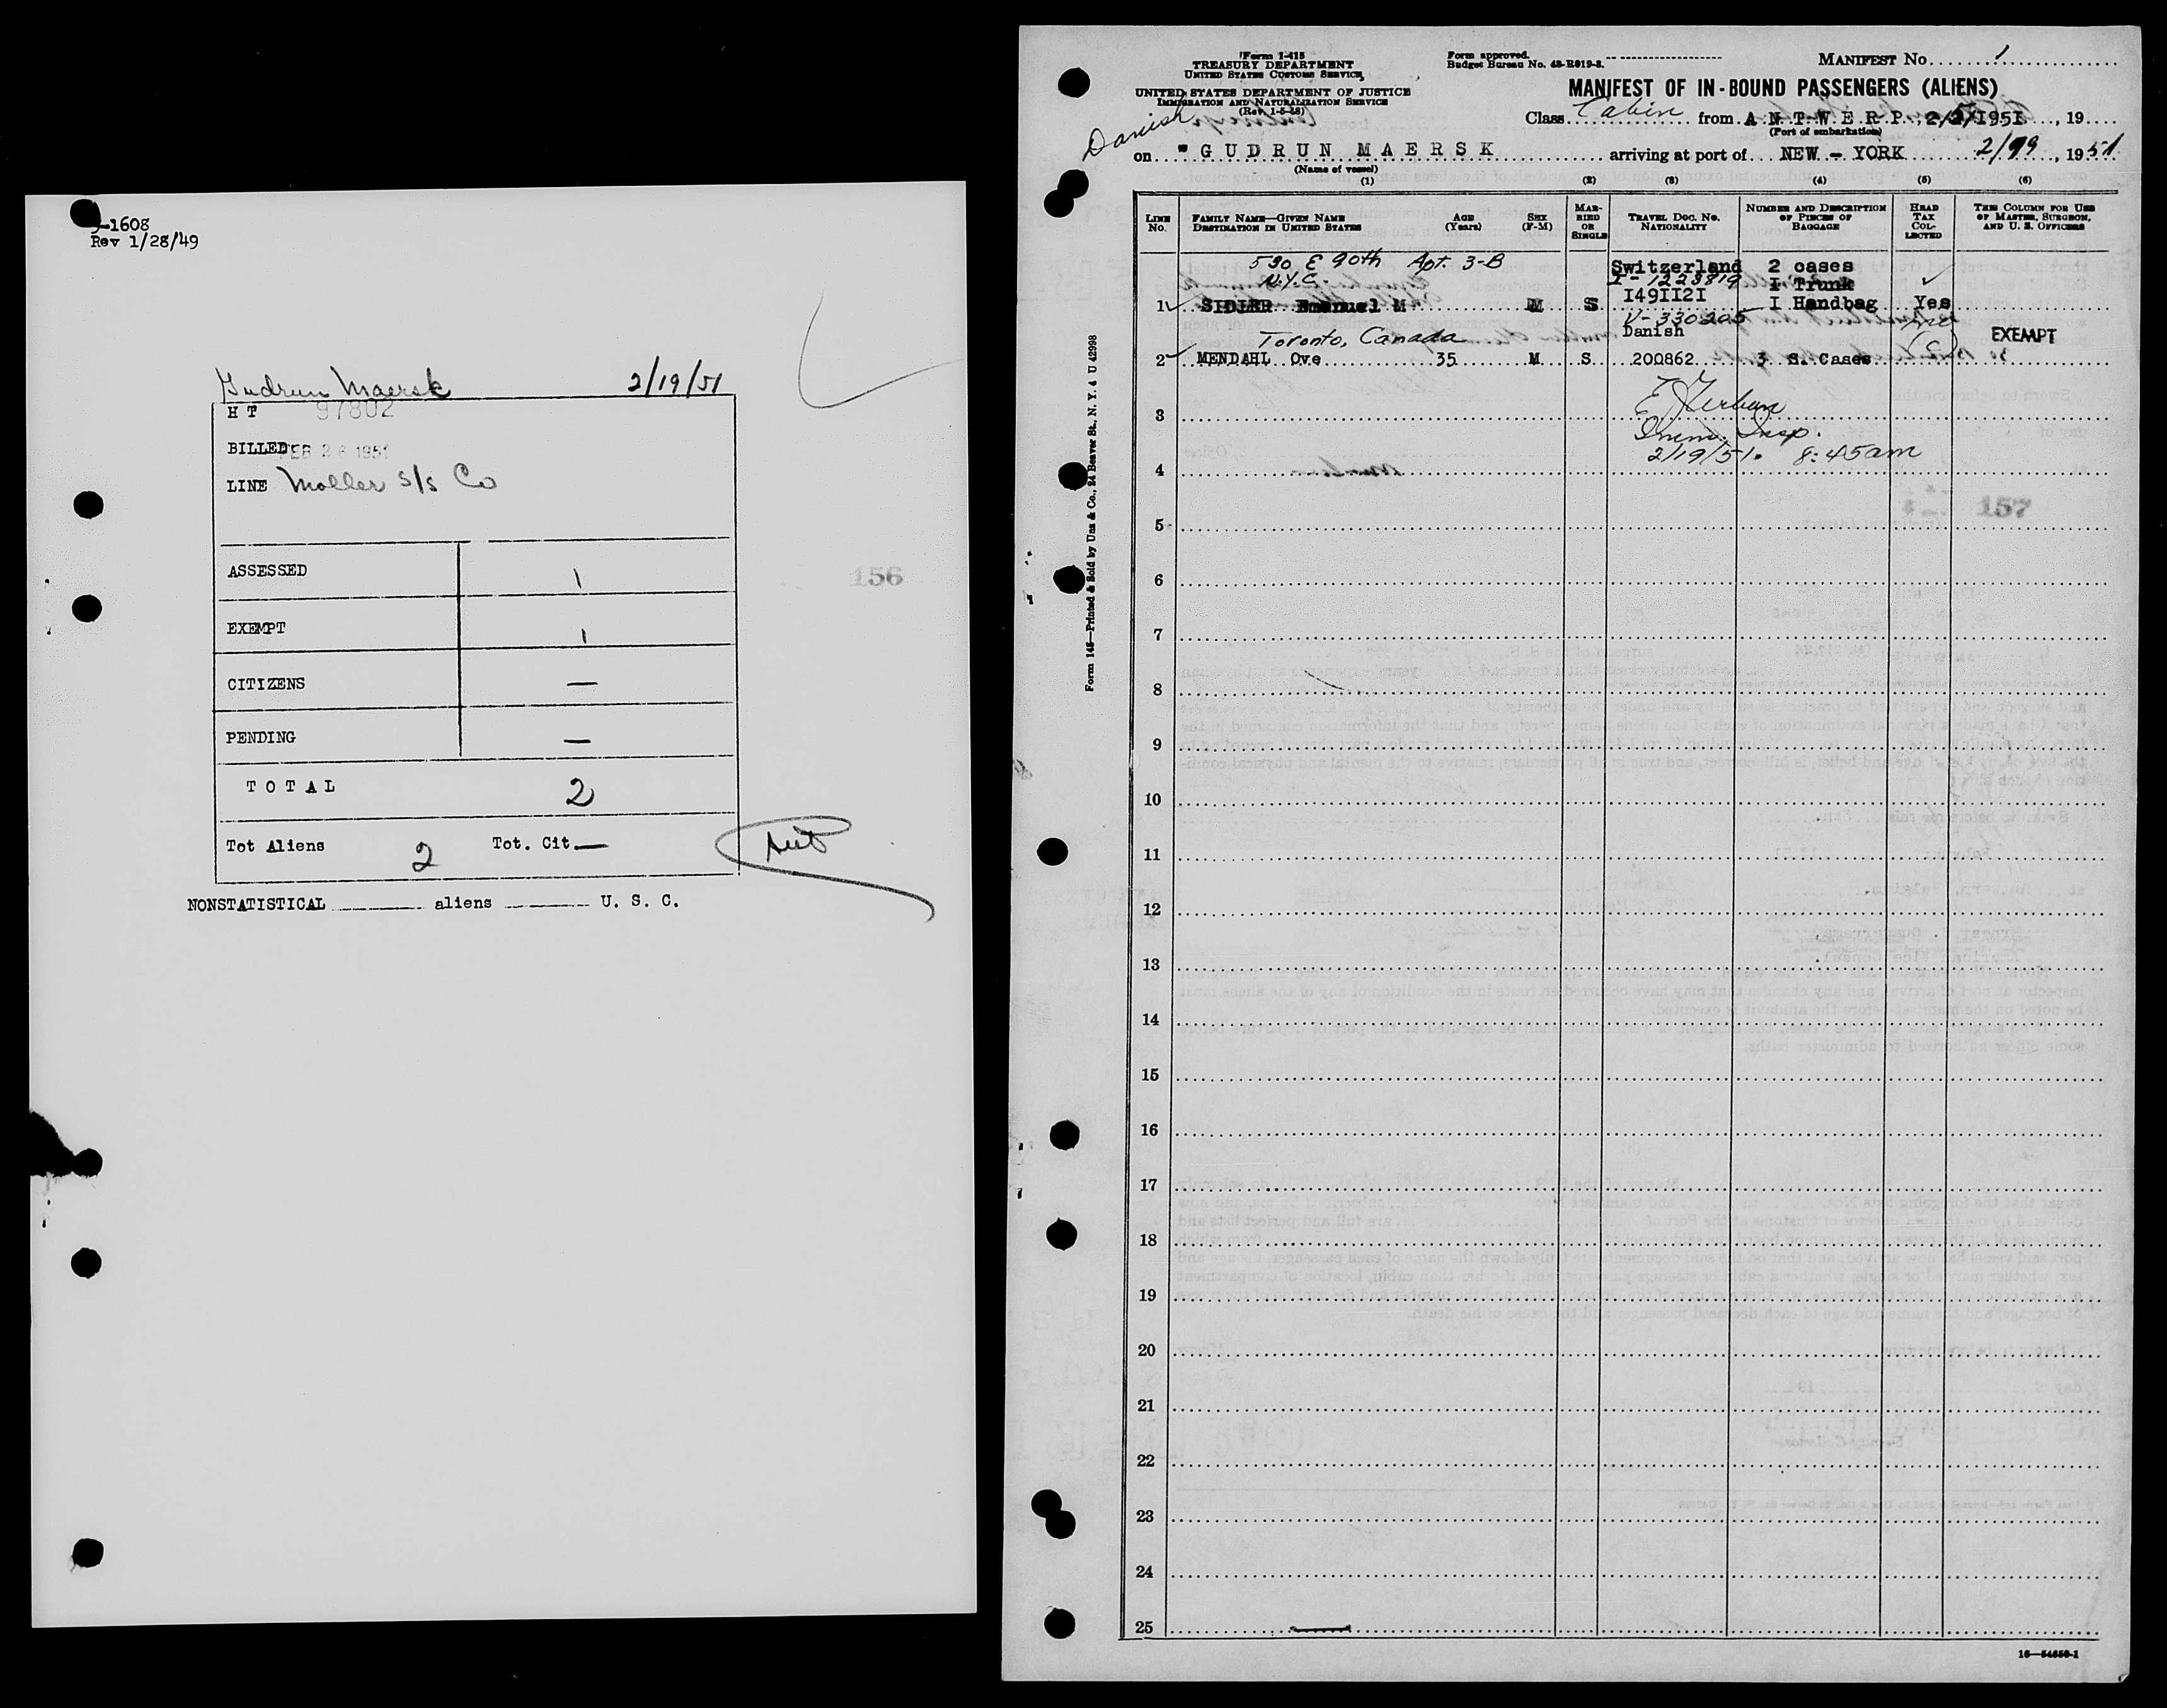 J-1608
Rev 1/28/49
Gudrun Maersk 2/19/51
H T 97802
BILLED FEB 26 1951
LINE Moller S/S Co
156
ASSESSED 1
EXEMPT 1
CITIZENS —
PENDING —
T O T A L 2
Tot Aliens 2 Tot. Cit. —
NONSTATISTICAL aliens U. S. C.
Form I-415
TREASURY DEPARTMENT
UNITED STATES CUSTOMS SERVICE
UNITED STATES DEPARTMENT OF JUSTICE
IMMIGRATION AND NATURALIZATION SERVICE
Danish
Form approved.
Budget Bureau No. 43-R019-3.
MANIFEST No. 1
MANIFEST OF IN-BOUND PASSENGERS (ALIENS)
Class Cabin from A N T W E R P. 2/5/1951, 19
(Port of embarkation)
on " G U D R U N M A E R S K arriving at port of NEW - YORK 2/19, 1951
(Name of vessel)
(1) (2) (3) (4) (5) (6)
LINE No.
FAMILY NAME—GIVEN NAME
DESTINATION IN UNITED STATES
AGE (Years)
SEX (F-M)
MARRIED OR SINGLE
TRAVEL DOC. NO.
NATIONALITY
NUMBER AND DESCRIPTION OF PIECES OF BAGGAGE
HEAD TAX COLLECTED
THIS COLUMN FOR USE OF MASTER, SURGEON, AND U. S. OFFICERS
530 E 90th Apt. 3-B Switzerland 2 cases
N.Y.C. I-1223819 I Trunk
1 SIDLER Emanuel M M S I49II2I I Handbag Yes
V-330205
Toronto, Canada Danish EXEMPT
2 MENDAHL Ove 35 M S 200862 3 S. Cases (C)
3
Imm. Insp.
2/19/51. 8:45am
4
157
5
6
7
8
9
10
11
12
13
14
15
16
17
18
19
20
21
22
23
24
25
Form 145—Printed & Sold by Unz & Co., 24 Beaver St., N. Y. 4 U 42998
16—54650-1